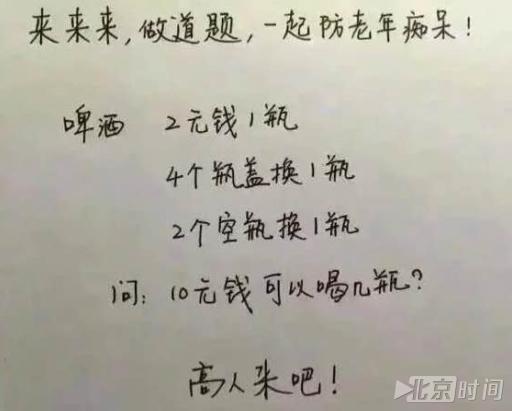 来来来,做道题,一起防老年痴呆!
啤酒 2元钱1瓶
4个瓶盖换1瓶
2个空瓶换1瓶
问:10元钱可以喝几瓶?
高人来吧!
北京时间